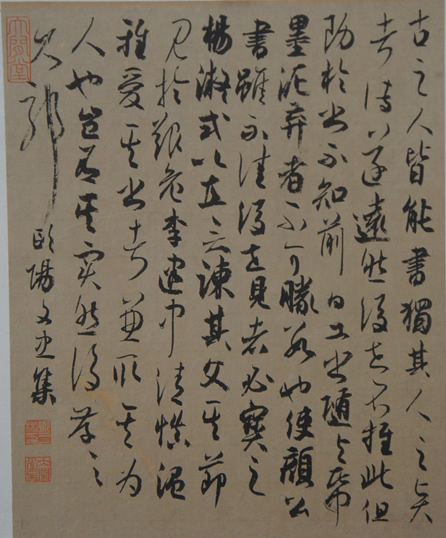 古之人皆能書獨其人之賢
者傳遂遠然後世不推此但
務於書不知前日工書隨與紙
墨泯棄者不可勝數也使顏公
書雖不佳後世見者必寶之
楊凝式以直言諫其父其節
見於艱危李建中清慎溫
雅愛其書者兼取其為
人也豈有其實然後存之
久耶 歐陽文忠集
大風堂